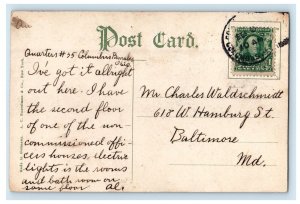 Post Card.
Quarters #35 Columbus Barracks
Ohio
I've got it allright
out here. I have
the second floor
of one of the non
commissioned offi-
cers houses, electric
lights is the rooms
and bath room on
same floor Al.
Mr Charles Waldschmidt
618 W. Hamburg St.
Baltimore
Md.